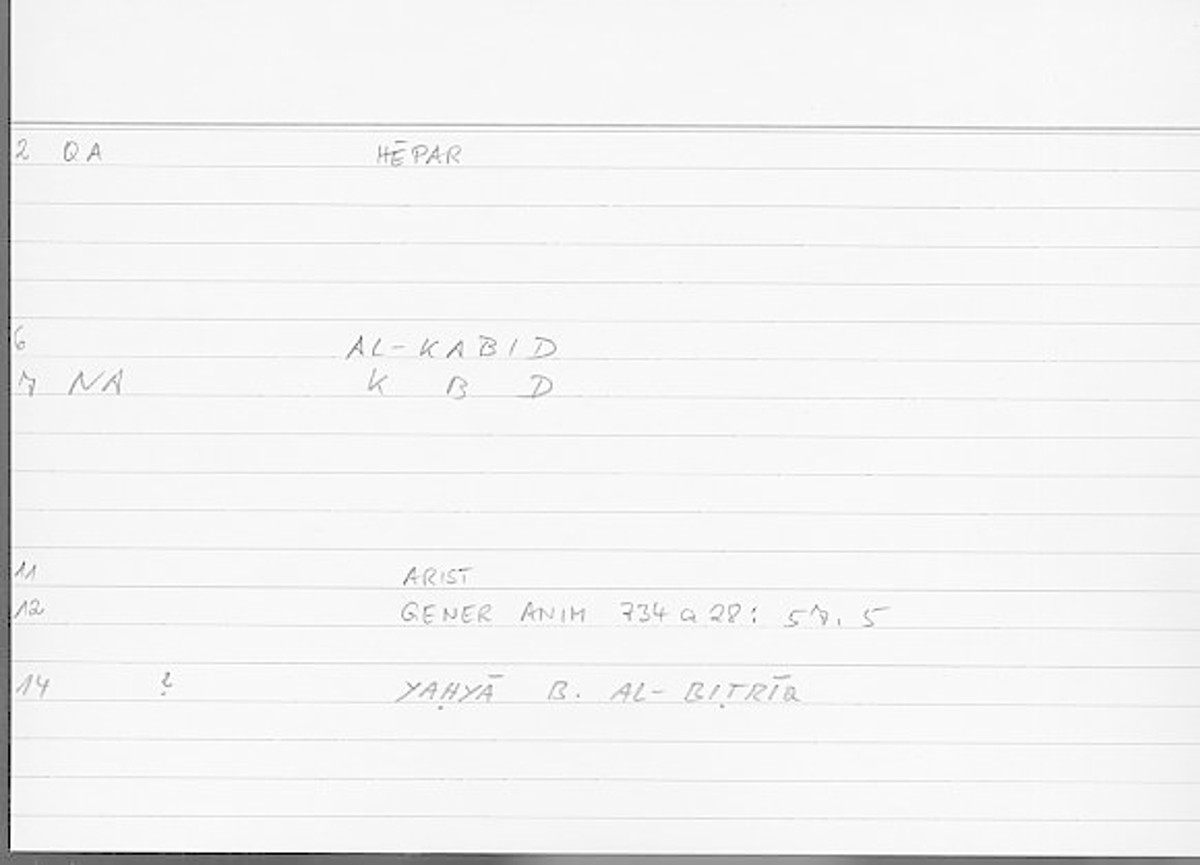 2 QA HĒPAR
6 AL-KABID
7 NA K B D
11 ARIST
12 GENER ANIM 734 a 28: 57, 5
14 ? YAḤYĀ B. AL-BIṬRĪQ